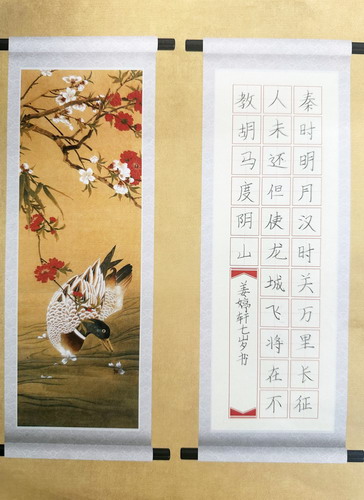 秦时明月汉时关万里长征
人未还但使龙城飞将在不
教胡马度阴山
姜婷轩七岁书